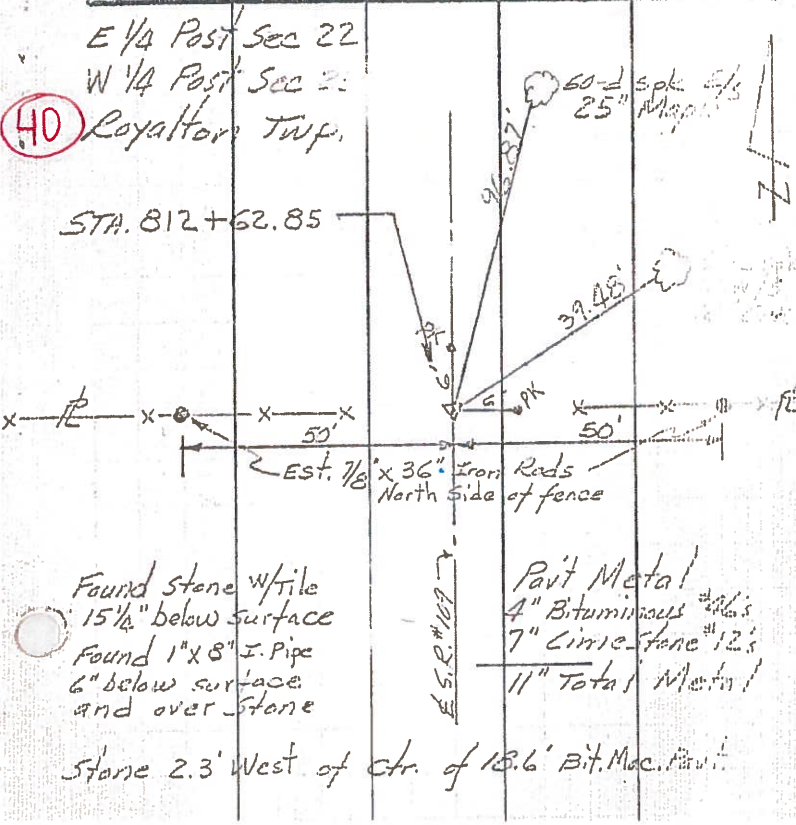 E 1/4 Post Sec 22
W 1/4 Post Sec
40
Royalton Twp.
60-d spk
25" Maple
N
96.87'
STA. 812+62.85
39.48'
PK
6'
PK
x x x x x x x
50' 50'
Est. 7/8" x 36" Iron Rods
North Side of fence
S.R. #109
Found Stone W/Tile
15 1/2" below surface
Found 1"x8" I. Pipe
6" below surface
and over Stone
Pav't Metal
4" Bituminous #46's
7" Limestone #12's
11" Total Metal
Stone 2.3' West of ctr. of 18.6' Bit. Mac. Pav't.